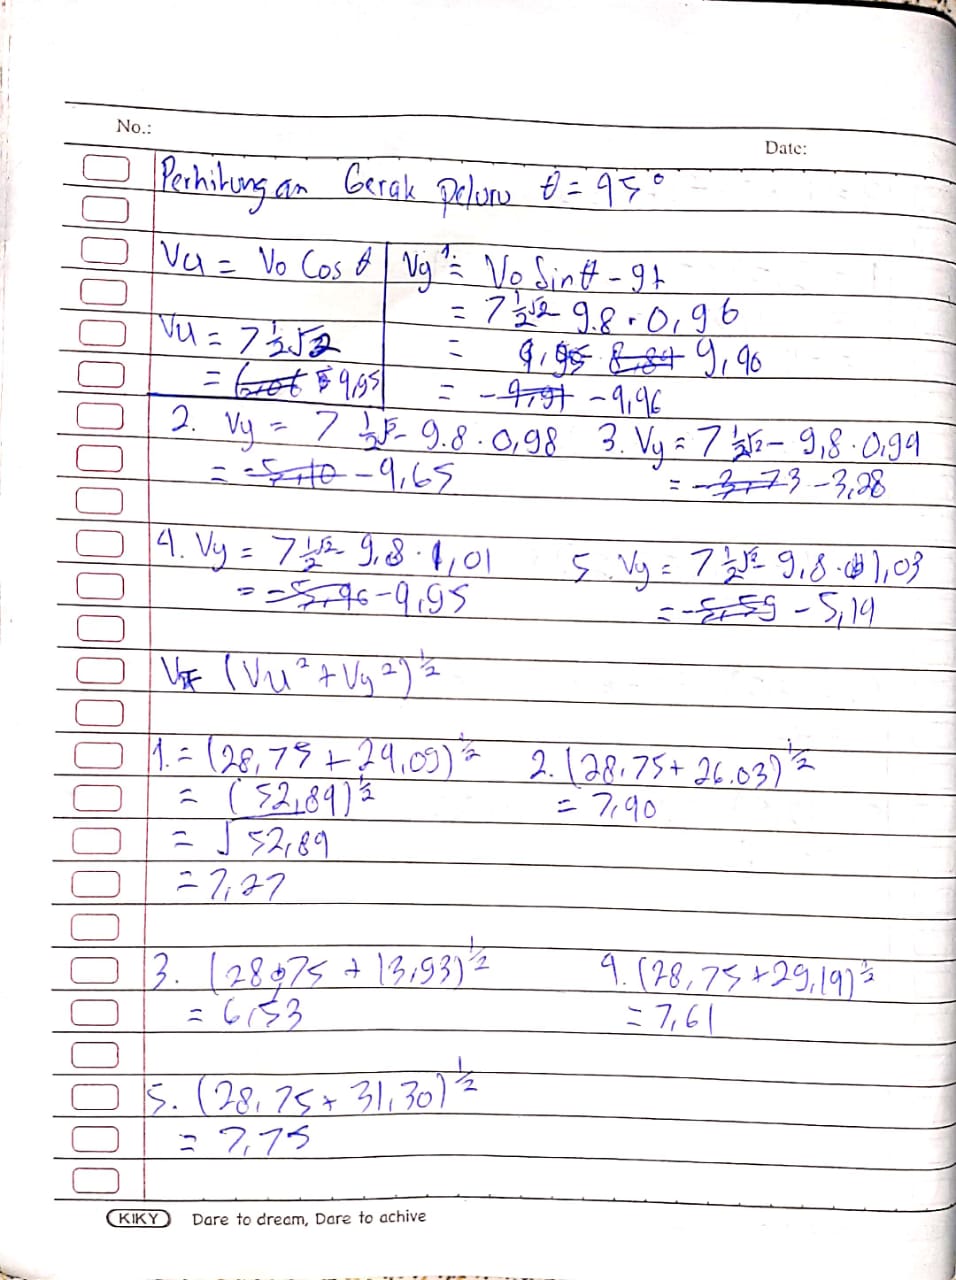 No.:
Date:
Perhitungan Gerak Peluru θ = 45°
Vu = Vo Cos θ
Vu = 7 ½√2
= 4,95
Vy 1 = Vo Sin θ - gt
= 7 ½√2 - 9.8 . 0,96
=
= -4,46
2. Vy = 7 ½√2 - 9.8 . 0,98
= -4,65
3. Vy = 7 ½√2 - 9,8 . 0,94
= -3,28
4. Vy = 7 ½√2 - 9,8 . 1,01
= -4,95
5. Vy = 7 ½√2 - 9,8 . 1,03
= -5,14
V = (Vu² + Vy²)½
1. = (28,75 + 24,09)½
= (52,84)½
= √52,84
= 7,27
2. (28.75 + 26.03)½
= 7,40
3. (28,75 + 13,93)½
= 6,53
4. (28,75 + 29,19)½
= 7,61
5. (28,75 + 31,30)½
= 7,75
KIKY Dare to dream, Dare to achive